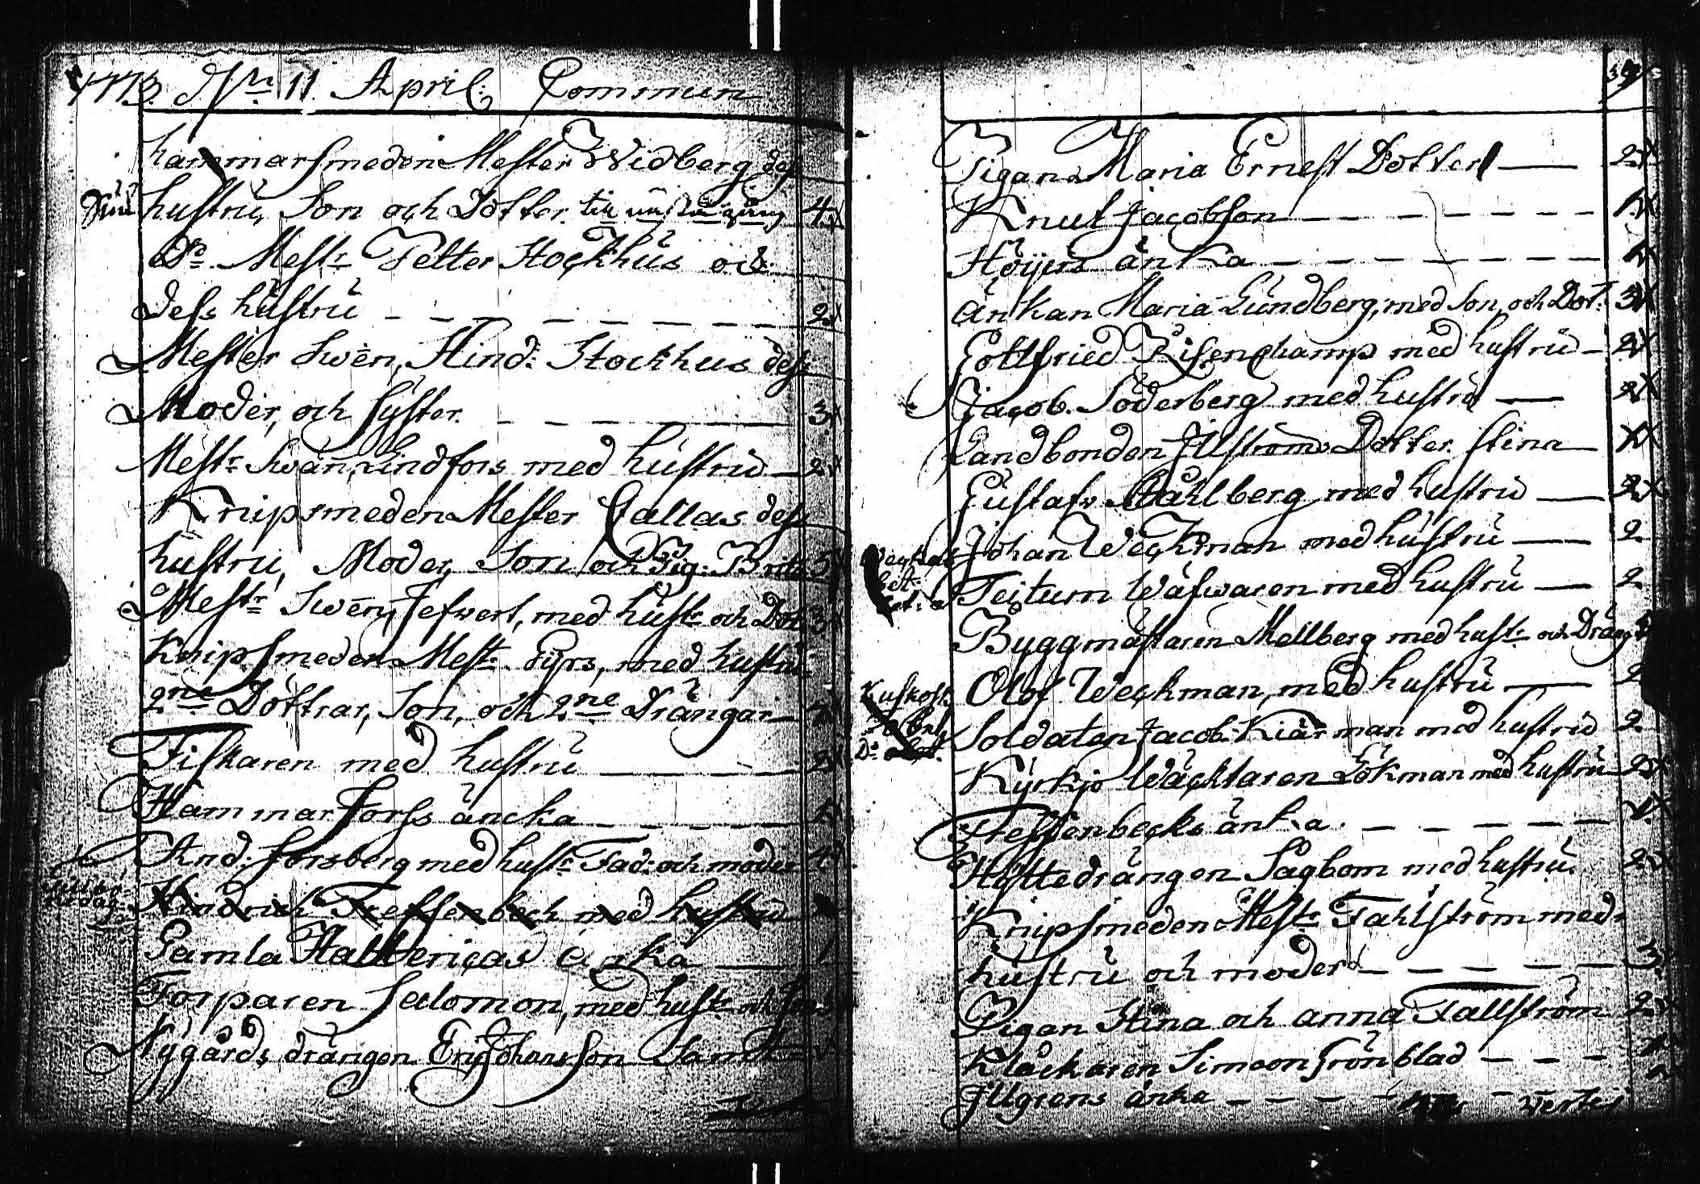 1773. 11 April: Commun
hammarsmeden Mester Widberg, des
hustru, Son och Dotter 4
Do Mestr Petter Stockhus och
dess hustru 2
Mester Swen, Hind: Stockhus des
Moder, och Syster. 3
Mestr Swan, Lindfors med hustru 2
Knipsmeden Mester Gallas des
hustru, Moder, Son och Pig: Brita 5
Mestr Swen, Sefvert, med hustr och Dot 3
Knipsmeden Mestr Fyrs, med hustru
2ne Döttrar, Son, och 2ne Drängar
Fiskaren med hustru 2
Hammarforss äncka
And: Forsberg med hustr Fad: och moder 4
Hindrich Treffenbech med hustru
Gamla änka 1
Torparen Salomon, med hustr och
Nygårds drängen Eric Johansson
Pigan Maria Ernest Dotter 2
Knut Jacobson
Höijers änka
Änkan Maria Lundberg, med Son, och Dot: 3
Gottfried med hustru 2
Jacob Söderberg med hustru 2
Landbonden Illströms Dotter Stina
Gustafv Ståhlberg med hustru 2
Johan Weckman med hustru 2
Wäfwaren med hustru 2
Byggmästaren Mellberg med hustr och Dräng
Olof Weckman, med hustru 2
Soldaten Jacob Kiärman med hustru 2
Kyrkjo Wäcktaren Lökman med hustru 2
Treffenbecks änka
Hyttedrängen Sagbom med hustru 2
Knipsmeden Mestr Fahlström med
hustru och moder 3
Pigan Stina och anna Fallström 2
Klåckaren Simeon Grönblad
Illgrens änka